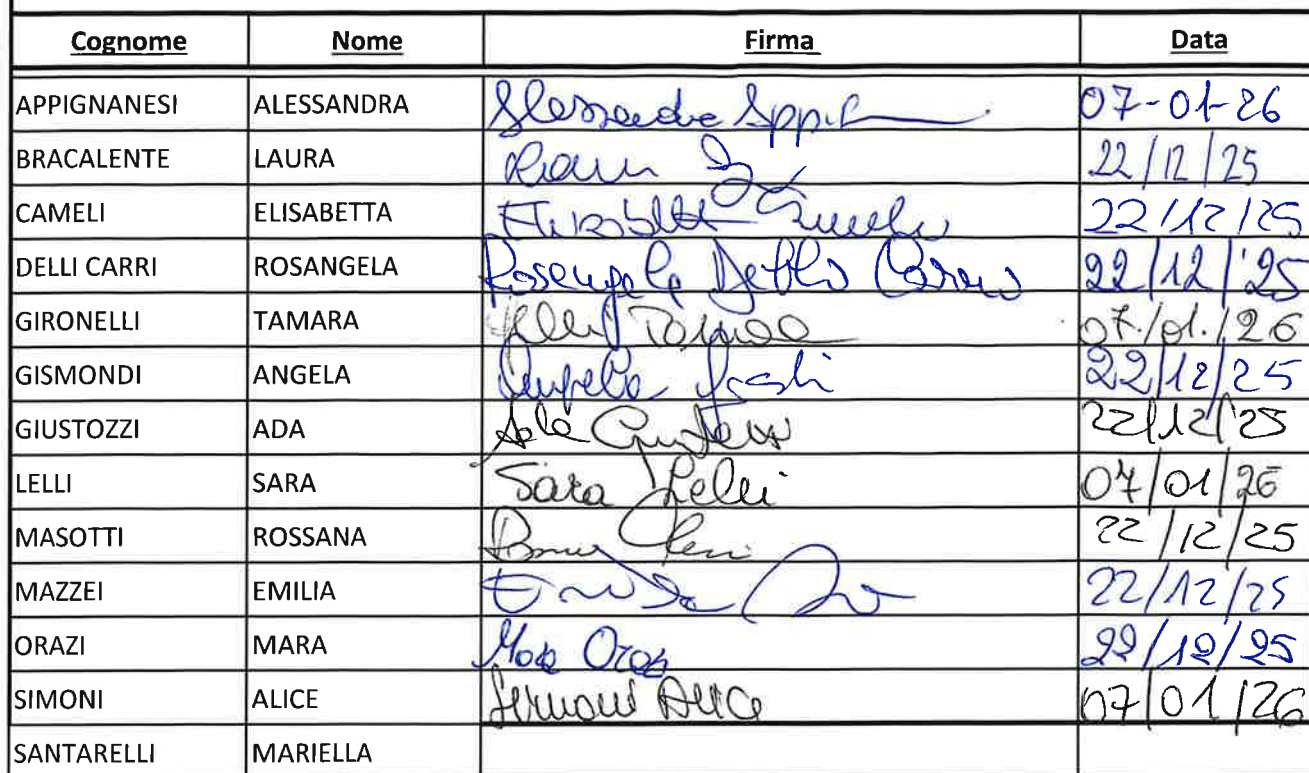 Cognome Nome Firma Data
APPIGNANESI ALESSANDRA Alessandra Appi 07-01-26
BRACALENTE LAURA Laura 22/12/25
CAMELI ELISABETTA Elisabetta Cameli 22/12/25
DELLI CARRI ROSANGELA Rosangela Delli Carri 22/12/'25
GIRONELLI TAMARA Tamara 07/01/26
GISMONDI ANGELA Angela 22/12/25
GIUSTOZZI ADA Ada Giustozzi 22/12/25
LELLI SARA Sara Lelli 07/01/26
MASOTTI ROSSANA 22/12/25
MAZZEI EMILIA Emilia 22/12/25
ORAZI MARA Mara Orazi 22/12/25
SIMONI ALICE Simoni Alice 07/01/26
SANTARELLI MARIELLA